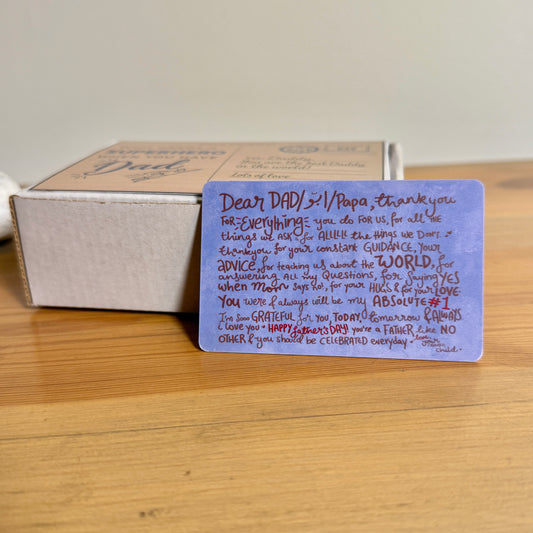 SUPERHERO
Dad
You are the best Daddy
in the world!
Lots of love
Dear DAD/بابا/Papa, thank you
FOR Everything you do FOR US, for all THE
things we ASK & for ALLLLL the things WE DON'T.
thankyou for your constant GUIDANCE, Your
ADVICE, for teaching us about the WORLD, FOR
answering ALL my Questions, for saying YES
when Mom says No!, for your HUGS & for your LOVE
YOU were & always will be my ABSOLUTE #1
I'm sooo GRATEFUL for you, TODAY, tomorrow & ALWAYS
i love you HAPPY father's DAY! you're a FATHER like NO
OTHER & you should be CELEBRATED everyday